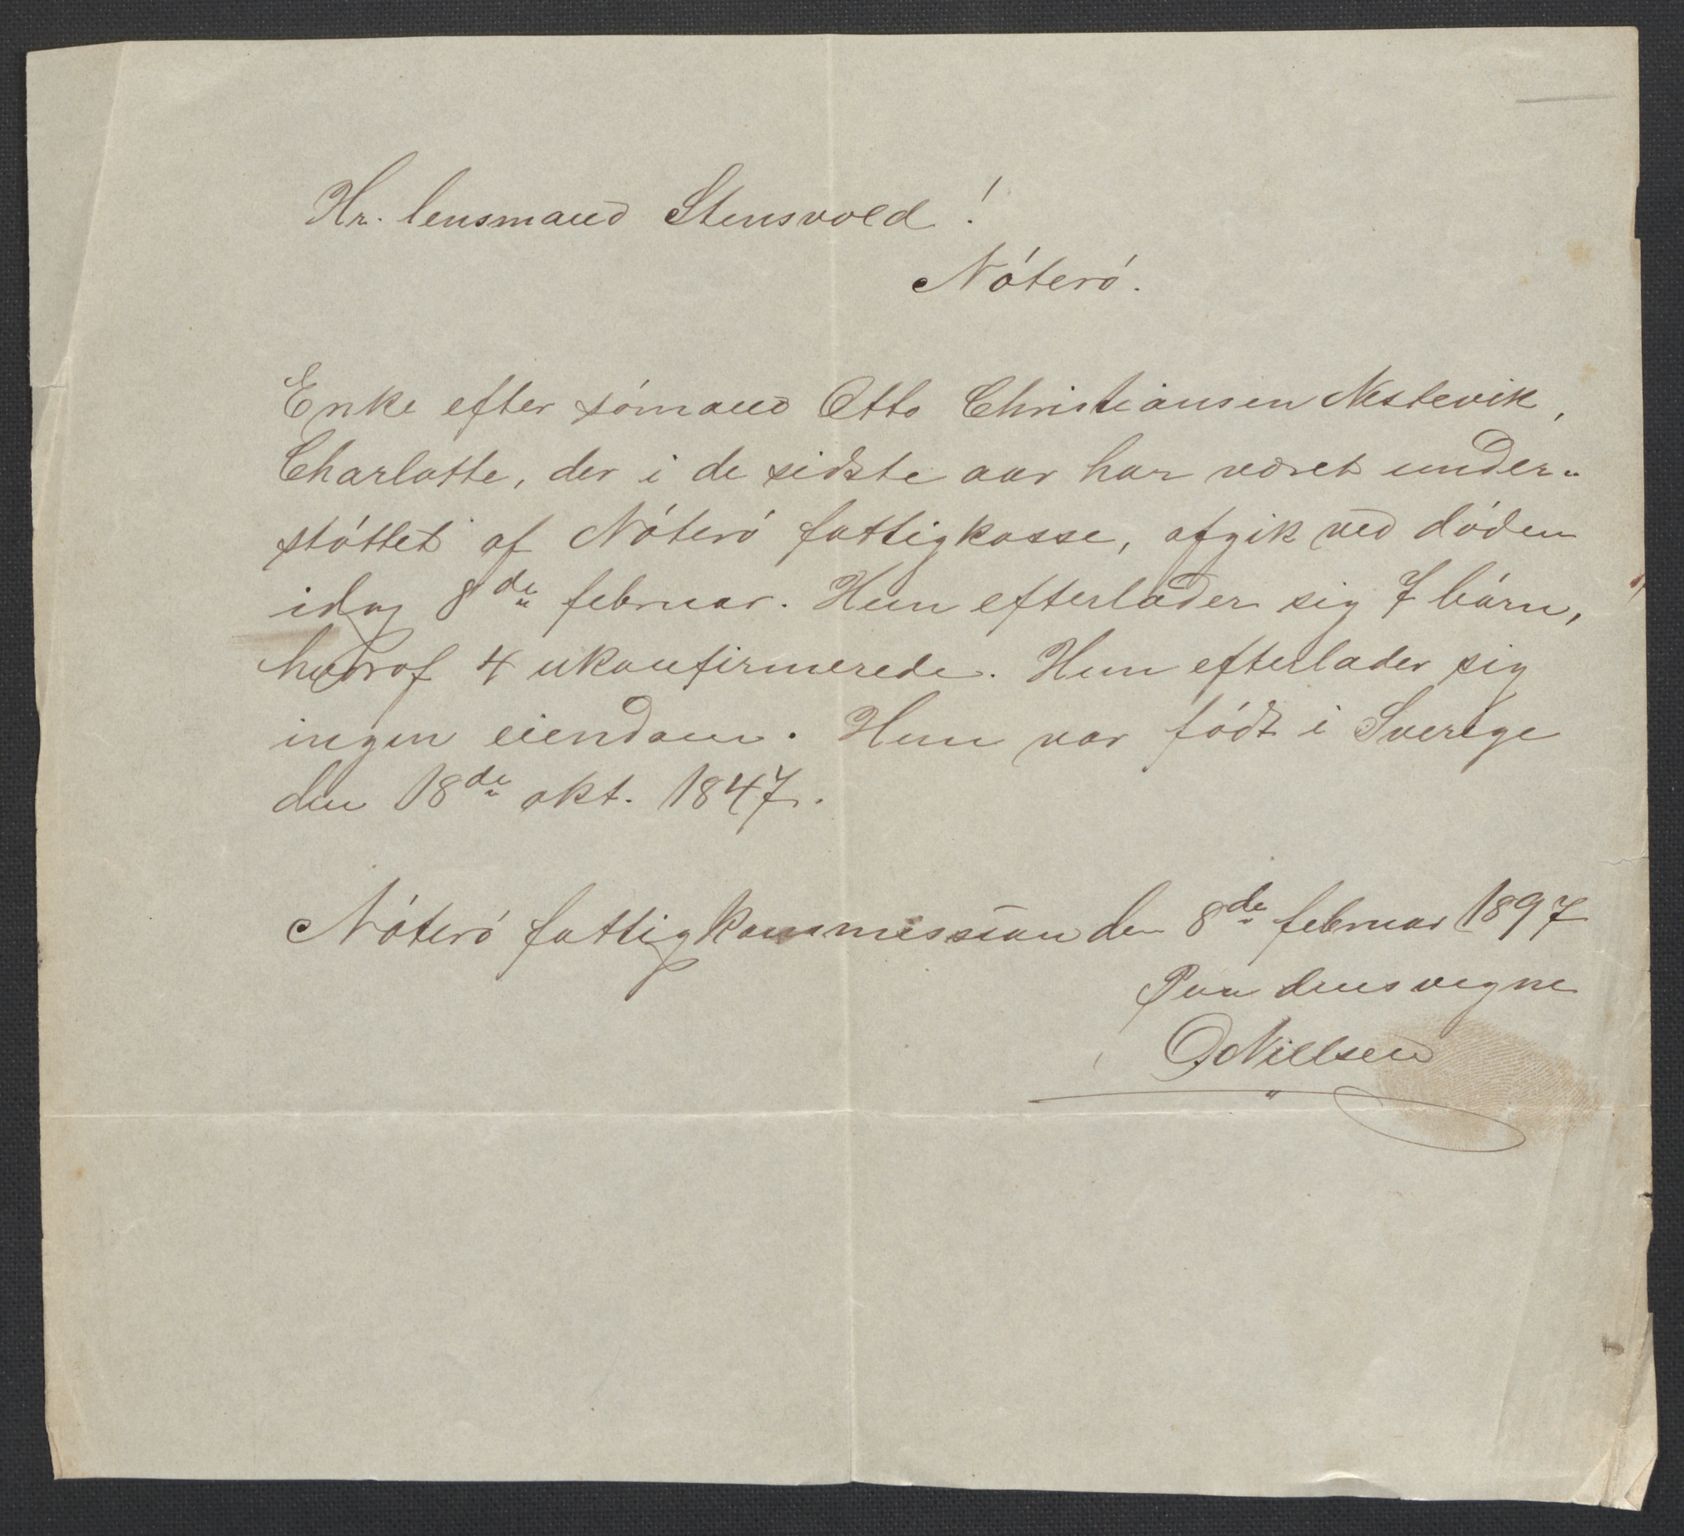 Hr. lensmand Stensvold!
Nóteró.
Enke efter sómand Otto Christiansen Nestevik,
Charlotte, der i de sidste aar har været under-
stóttet af Nóteró fattigkasse, afgik ved dóden
idag 8de februar. Hun efterlader sig 7 bórn,
hvoraf 4 ukonfirmerede. Hun efterlader sig
ingen eiendom. Hun var fódt i Sverige
den 18de okt. 1847.
Nóteró fattigkommission den 8de februar 1897
Paa dens vegne
O. Nillsen